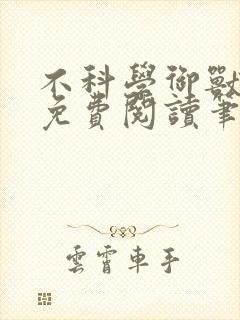 不科學御獸
免費閱讀筆
雲霄車手